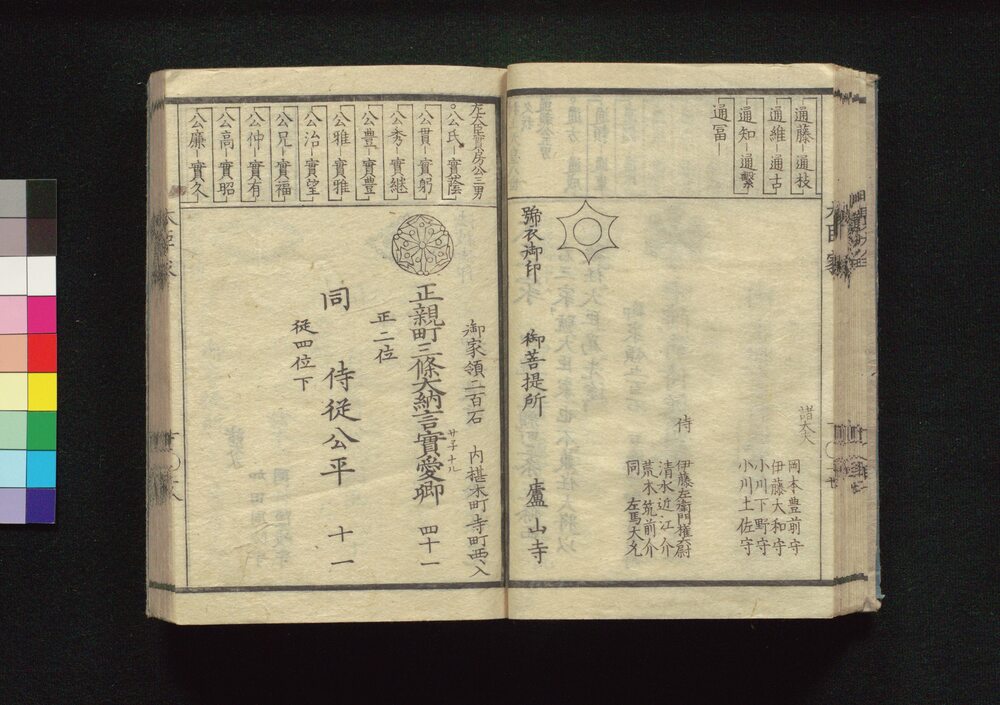 通藤 通枝
通維 通古
通知 通繫
通冨
諸大夫
岡本豊前守
伊藤大和守
小川下野守
小川土佐守
侍
伊藤左衛門權大尉
清水近江介
荒木筑前介
同 左馬大允
號衣御印 御菩提所 廬山寺
左大臣實房公三男
公氏 實蔭
公貫 實躬
公秀 實継
公豊 實豊
公雅 實雅
公治 實望
公兄 實福
公仲 實有
公高 實昭
公廉 實久
御家領二百石 内椹木町寺町西入
正親町三條大納言實愛卿 四十一
サ子ナル
正二位
同 侍從公平 十一
從四位下